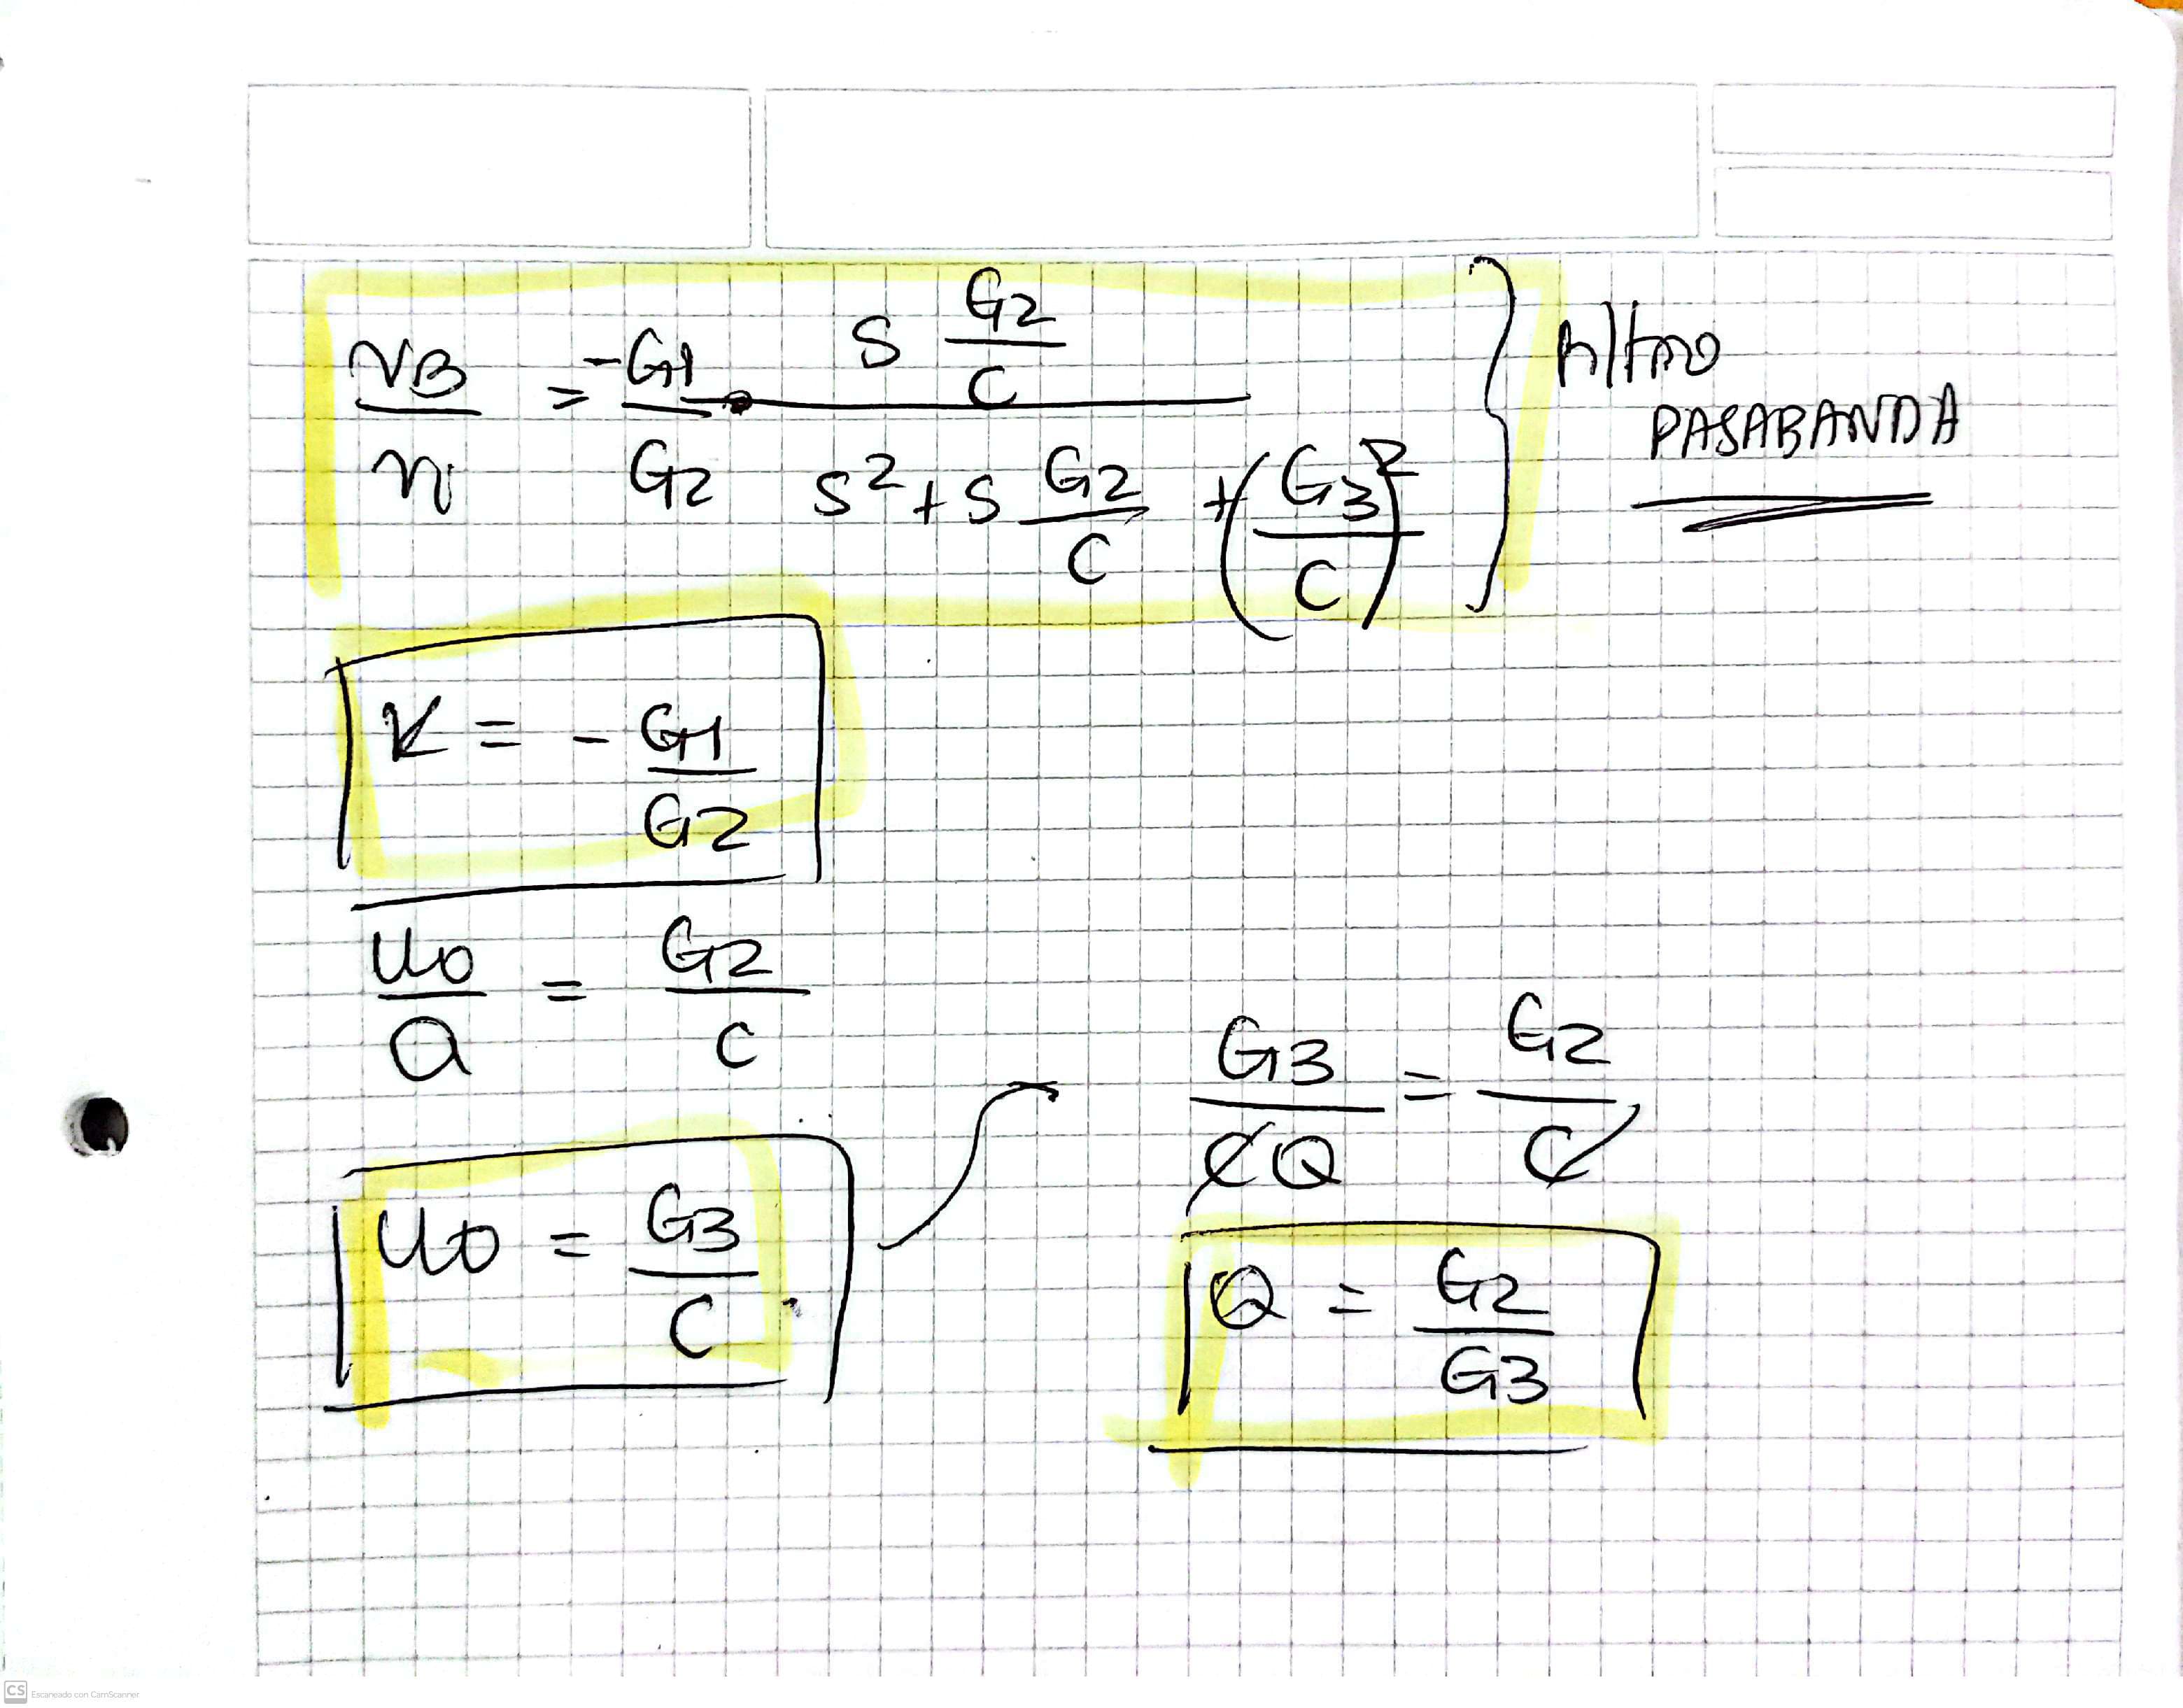 VB/Vi = -G1/G2 · (S G2/C) / (S² + S G2/C + (G3/C)²) } Filtro
PASABANDA
K = - G1/G2
ω0/Q = G2/C
G3/CQ = G2/C
ω0 = G3/C
Q = G2/G3
CS Escaneado con CamScanner